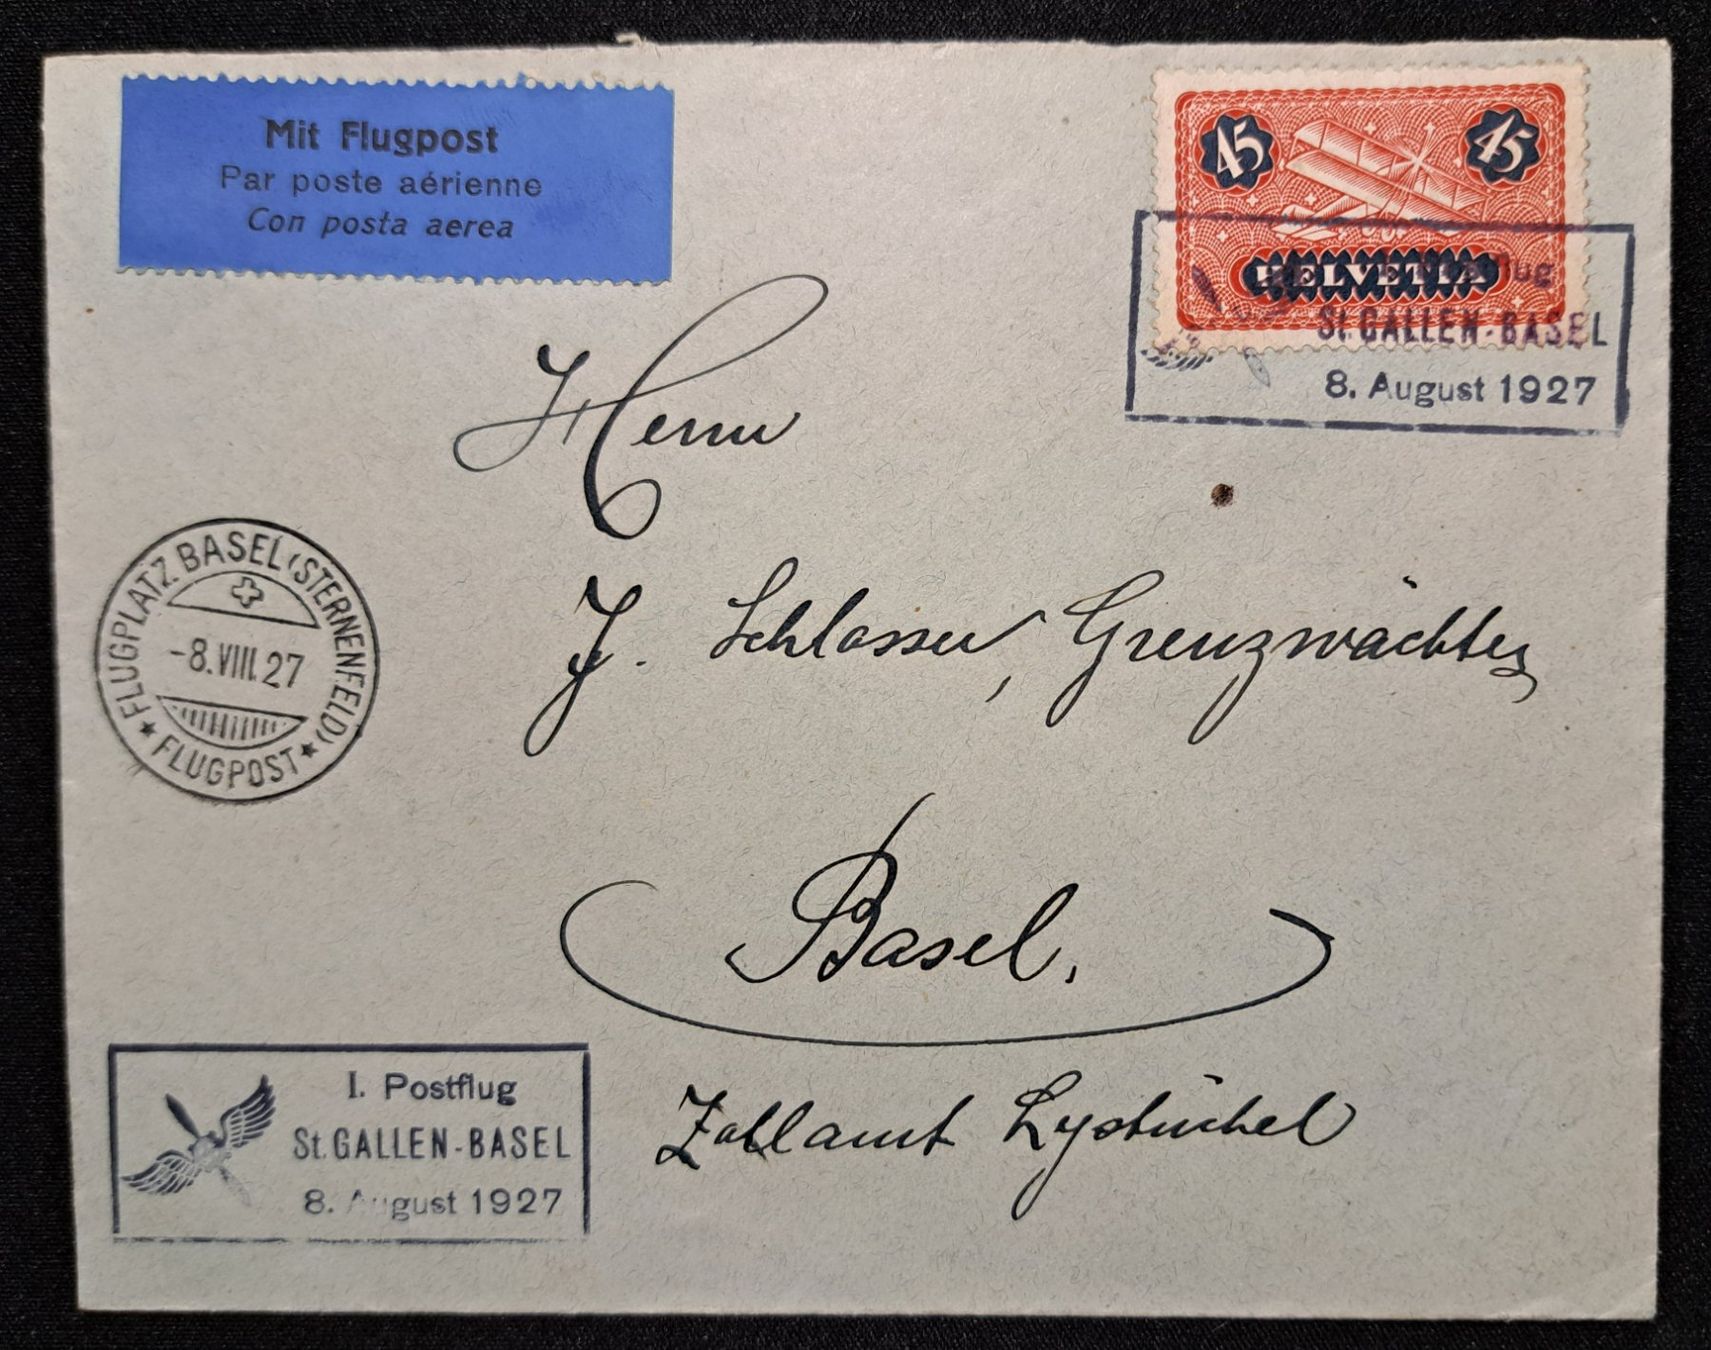 Mit Flugpost
Par poste aérienne
Con posta aerea
45
45
HELVETIA
flug
St. GALLEN-BASEL
8. August 1927
Herrn
J. Schlosser, Grenzwächter
FLUGPLATZ BASEL (STERNENFELD)
-8.VIII.27
FLUGPOST
Basel.
Zollamt Lysbüchel
I. Postflug
St. GALLEN-BASEL
8. August 1927